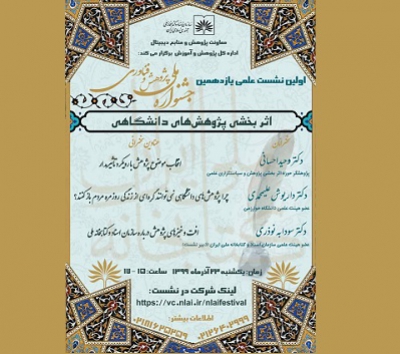 معاونت پژوهش و منابع دیجیتال
اداره کل پژوهش و آموزش برگزار می کند:
اولین نشست علمی یازدهمین
جشنواره ملی پژوهش و فناوری
اثر بخشی پژوهش‌های دانشگاهی
سخنرانان
عناوین سخنرانی
دکتر وحید احسانی
انتخاب موضوع پژوهش با رویکرد تأثیرمدار
پژوهشگر حوزه اثر بخشی پژوهش و سیاستگذاری علمی
دکتر داریوش علیمحمدی
چرا پژوهش‌های دانشگاهی نمی توانند گره‌ای از زندگی روزمره مردم باز کنند؟
عضو هیئت علمی دانشگاه خوارزمی
دکتر سودابه نوذری
افت و خیزهای پژوهش درباره سازمان اسناد و کتابخانه ملی
عضو هیئت علمی سازمان اسناد و کتابخانه ملی ایران (دبیر نشست)
زمان: یکشنبه ۲۳ آذر ماه ۱۳۹۹ ساعت: ۱۵ - ۱۷
لینک شرکت در نشست:
https://vc.nlai.ir/nlaifestival
اطلاعات بیشتر: